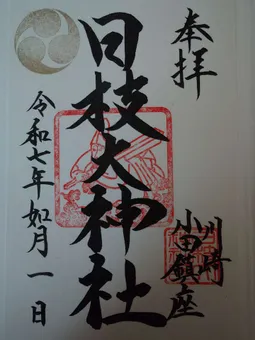 奉拝
川崎
小田鎮座
日枝大神社
令和七年如月一日